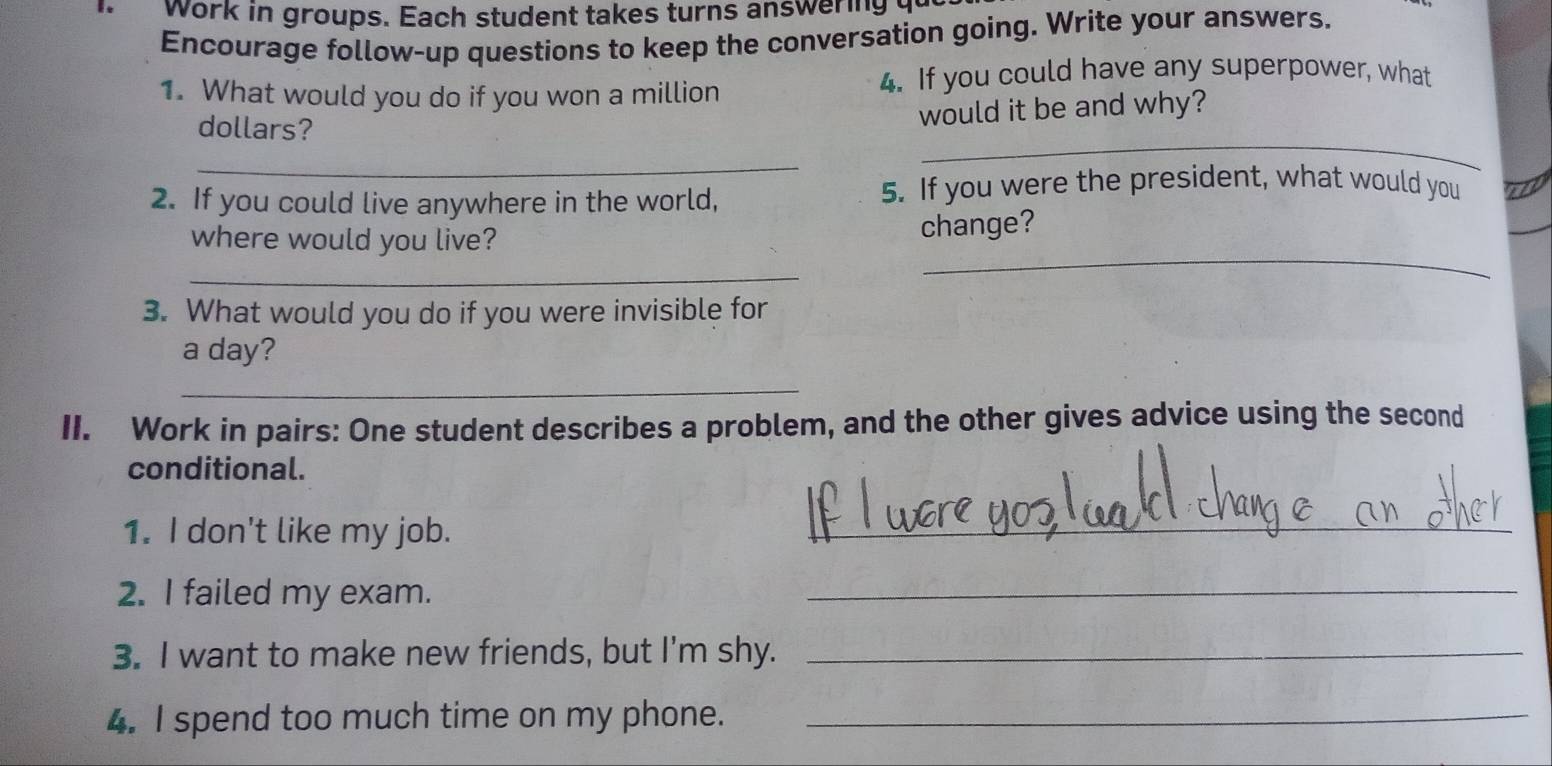 I. Work in groups. Each student takes turns answering
Encourage follow-up questions to keep the conversation going. Write your answers.
1. What would you do if you won a million
dollars?
2. If you could live anywhere in the world,
where would you live?
3. What would you do if you were invisible for
a day?
4. If you could have any superpower, what
would it be and why?
5. If you were the president, what would you
change?
II. Work in pairs: One student describes a problem, and the other gives advice using the second
conditional.
1. I don't like my job. If I were you, I would change an other
2. I failed my exam.
3. I want to make new friends, but I'm shy.
4. I spend too much time on my phone.